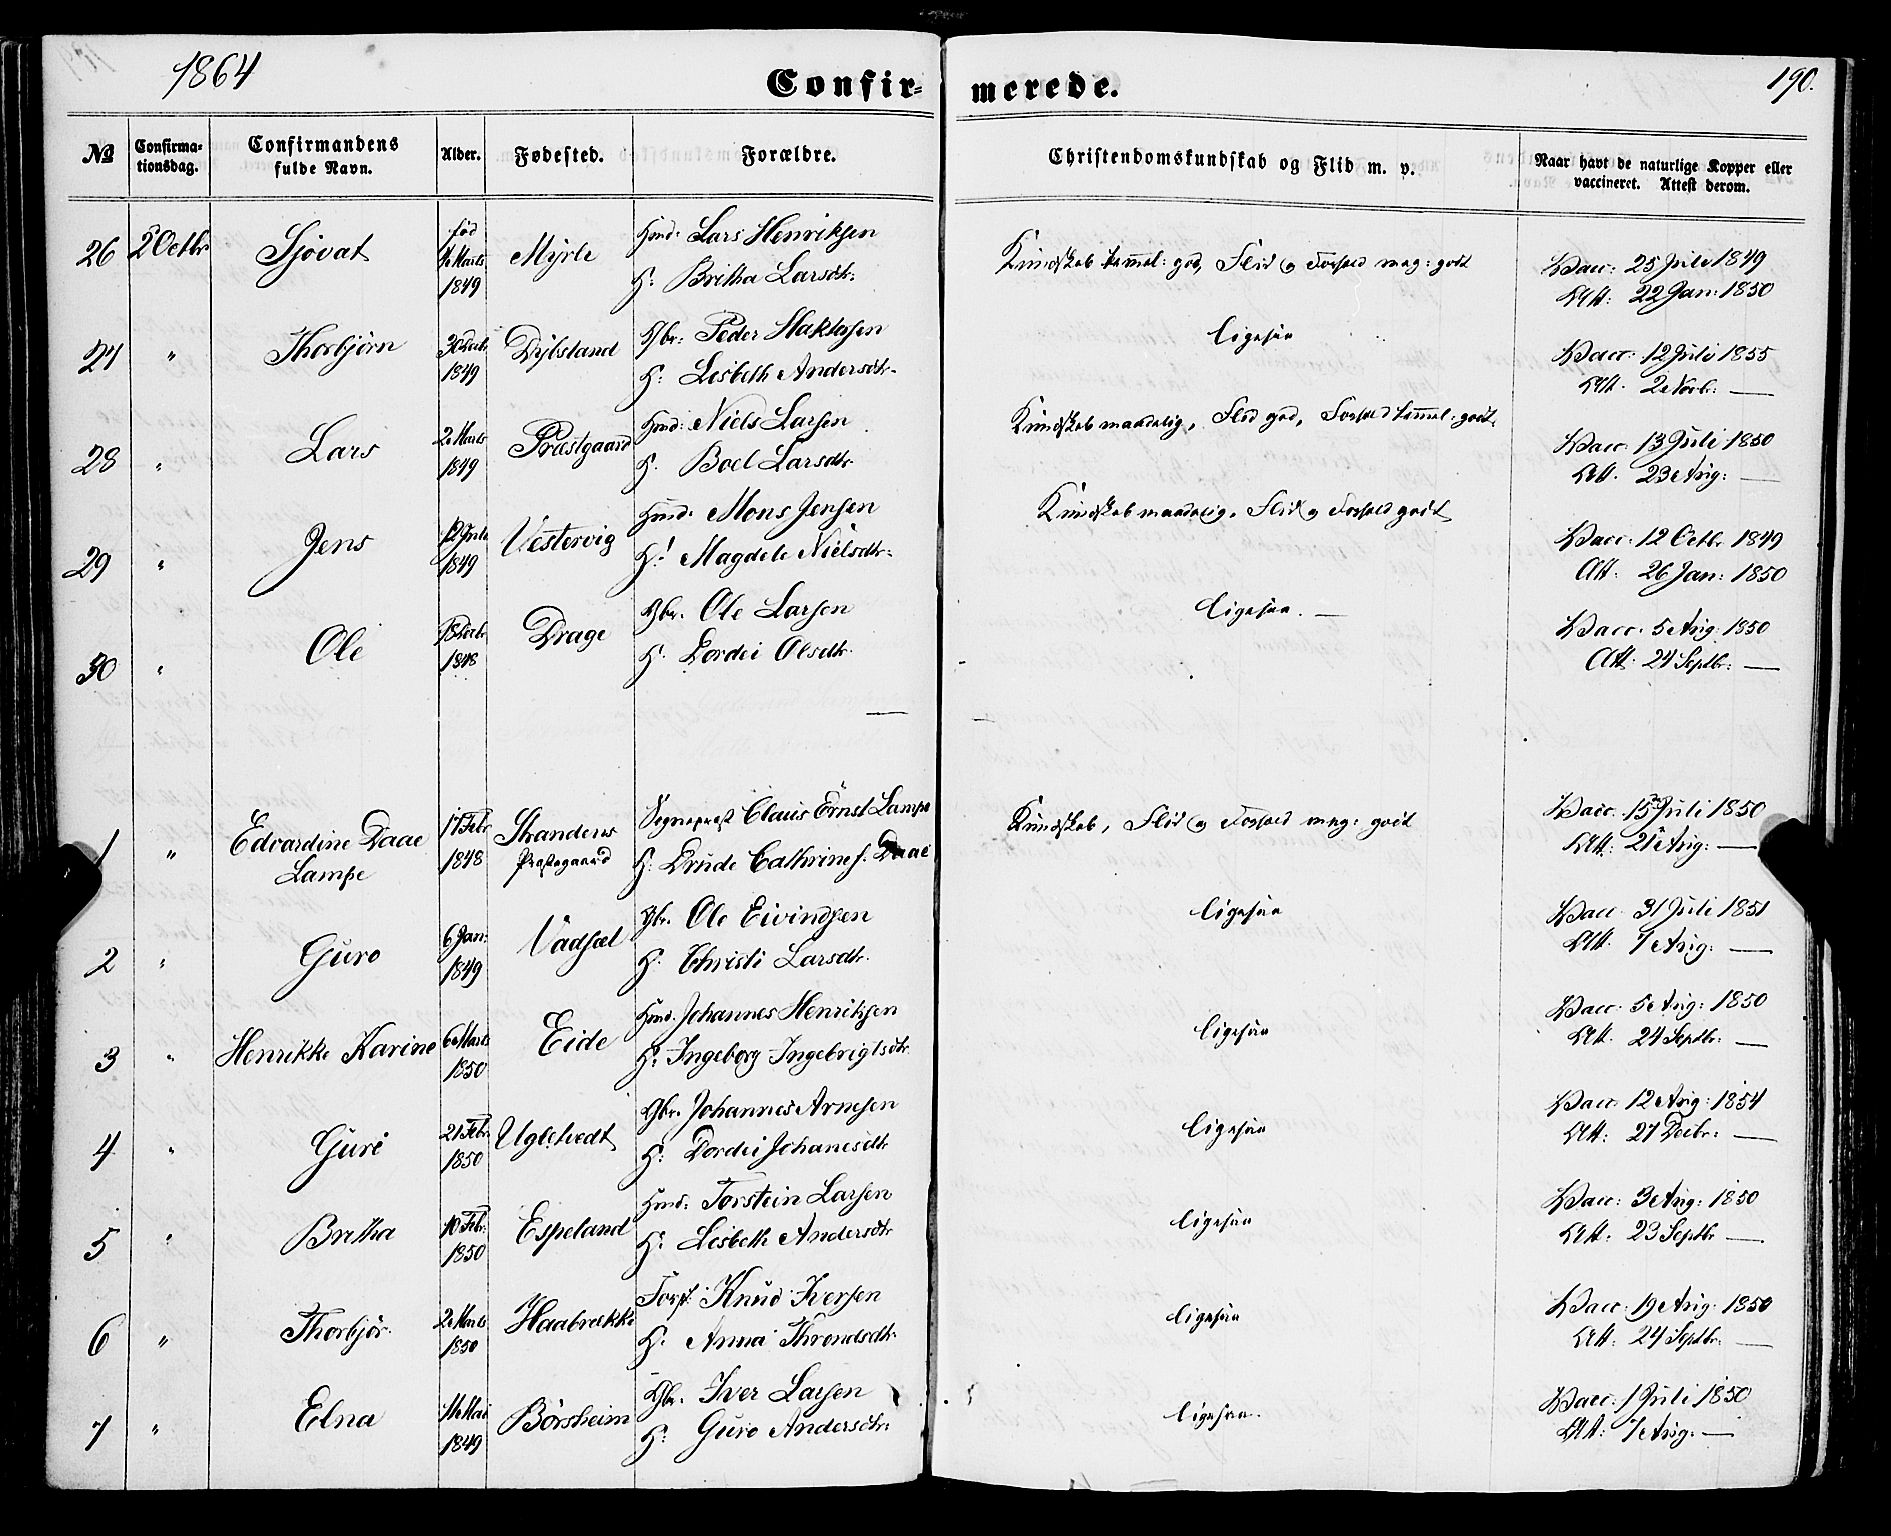 1864
Confir- merede.
190.
№ Confirma-tionsdag. Confirmandens fulde Navn. Alder. Fødested. Forældre. Christendomskundskab og Flid m. v. Naar havt de naturlige Kopper eller vaccineret. Attest derom.
26 2 Octbr Sjovat fød Marts 1849 Myrle Hmd: Lars Henriksen
H: Britha Larsdtr. Kundskab temmel: god, Flid og Forhold meg: godt Vacc: 25 Juli 1849
Att: 22 Jan: 1850
27 " Thorbjørn 30 Decbr 1849 Dybsland Gbr: Peder Haktorsen
H: Lisbeth Andersdtr. ligesaa Vacc: 12 Juli 1855
Att. 2 Novbr: —
28 " Lars 2 Marts 1849 Præstgaard Hmd: Niels Larsen
H. Boel Larsdtr Kundskab maadelig, Flid god, Forhold temmel: godt. Vacc: 13 Juli 1850
Att. 23 Aug: —
29 " Jens 12 Juli 1849 Vestervig Hmd: Mons Jensen
H: Magdele Nielsdtr: Kundskab maadelig, Flid og Forhold godt Vacc: 12 Octbr 1849
Att: 26 Jan: 1850
30 " Ole 18 Decbr 1848 Drage Gbr. Ole Larsen
H. Dordei Olsdtr. ligesaa. — Vacc: 5 Aug: 1850
Att: 24 Septbr: —
1 " Edvardine Daae Lampe 17 Febr 1848 Strandens Præstegaard Sognepræst Claus Ernst Lampe
H: Drude Cathrine f. Daae Kundskab, Flid og Forhold meg: godt Vacc: 15 Juli 1850
Att: 21 Aug: —
2 " Guro 6 Jan: 1849 Vadsel Gbr. Ole Eivindsen
H: Christi Larsdtr. ligesaa Vacc: 31 Juli 1851
Att. 7 Aug: —
3 " Henrikke Karine 6 Marts 1850 Eide Hmd. Johannes Henriksen
H: Ingeborg Ingebrigtsdtr ligesaa Vacc: 5 Aug: 1850
Att. 24 Septbr: —
4 " Guro 21 Febr 1850 Uglehvedt Gbr. Johannes Arnesen
H: Dordei Johanesdtr ligesaa Vacc: 12 Aug: 1854
Att: 27 Decbr: —
5 " Britha 10 Febr: 1850 Espeland Hmd: Torstein Larsen
H: Lisbeth Andersdtr ligesaa Vacc: 3 Aug: 1850
Att: 23 Septbr —
6 " Thorbjør. 2 Marts 1850 Haabrekke Forp: Knud Iversen
H. Anna Throndsdtr. ligesaa Vacc: 19 Aug: 1850
Att: 24 Septbr: —
7 " Elna 14 Mai 1849 Børsheim Gbr. Iver Larsen
H: Guro Andersdtr: ligesaa. Vacc: 1 Juli 1850
Att: 7 Aug: —